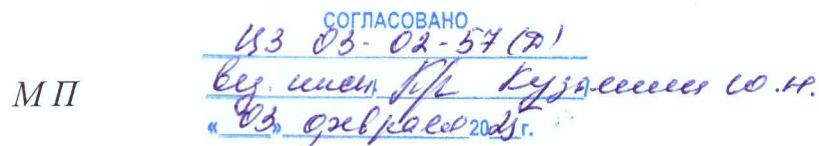 СОГЛАСОВАНО
ЦЗ 03-02-57 (Д)
МП вед. инж. Кузьмин Ю.Н.
«03» февраля 2025 г.